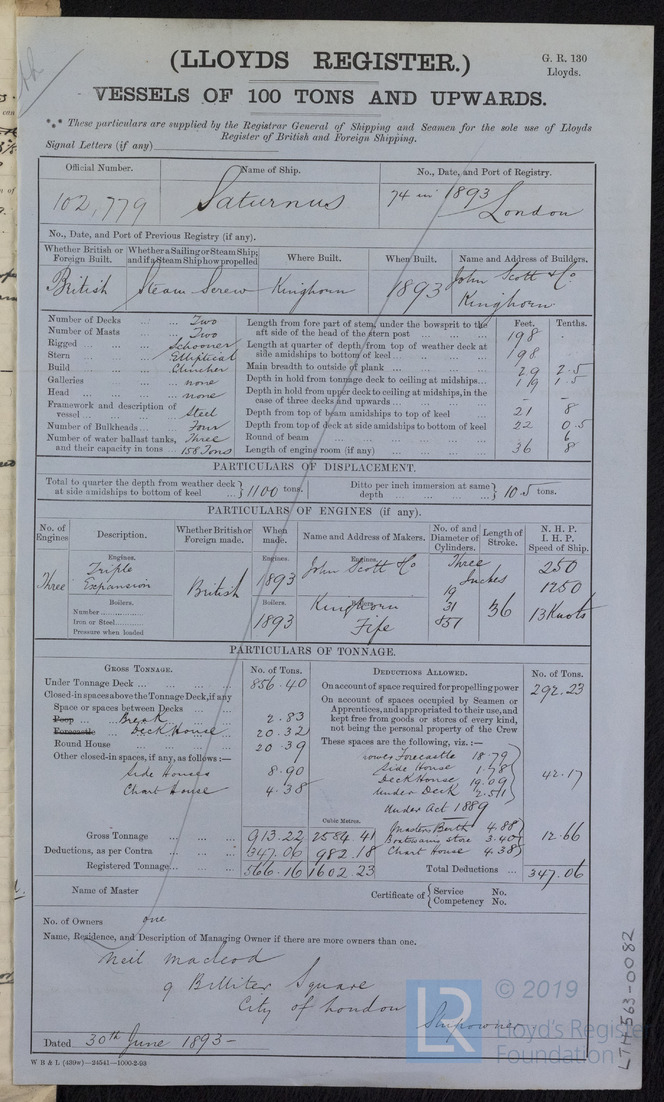 (LLOYDS REGISTER.)
G. R. 130
Lloyds.
VESSELS OF 100 TONS AND UPWARDS.
*** These particulars are supplied by the Registrar General of Shipping and Seamen for the sole use of Lloyds
Register of British and Foreign Shipping.
Signal Letters (if any)
Official Number. Name of Ship. No., Date, and Port of Registry.
102,779 Saturnus 74 in 1893 London
No., Date, and Port of Previous Registry (if any).
Whether British or Foreign Built. Whether a Sailing or Steam Ship; and if a Steam Ship how propelled Where Built. When Built. Name and Address of Builders.
British Steam Screw Kinghorn 1893 John Scott & Co Kinghorn
Number of Decks Two
Number of Masts Two
Rigged Schooner
Stern Elliptical
Build Clincher
Galleries none
Head none
Framework and description of vessel Steel
Number of Bulkheads Four
Number of water ballast tanks, and their capacity in tons Three 158 Tons
Feet. Tenths.
Length from fore part of stem, under the bowsprit to the aft side of the head of the stern post 198 .
Length at quarter of depth from top of weather deck at side amidships to bottom of keel 198
Main breadth to outside of plank 29 2.5
Depth in hold from tonnage deck to ceiling at midships 19 1.5
Depth in hold from upper deck to ceiling at midships, in the case of three decks and upwards - -
Depth from top of beam amidships to top of keel 21 8
Depth from top of deck at side amidships to bottom of keel 22 0.5
Round of beam 6
Length of engine room (if any) 36 8
PARTICULARS OF DISPLACEMENT.
Total to quarter the depth from weather deck at side amidships to bottom of keel 1100 tons. Ditto per inch immersion at same depth 10.5 tons.
PARTICULARS OF ENGINES (if any).
No. of Engines Description. Whether British or Foreign made. When made. Name and Address of Makers. No. of and Diameter of Cylinders. Length of Stroke. N. H. P. I. H. P. Speed of Ship.
Engines. Engines. Engines.
Three Triple Expansion British 1893 John Scott & Co Three Inches 19 31 &51 36 250 1250 13 Knots
Boilers. Boilers. Boilers.
Number
Iron or Steel
Pressure when loaded
1893 Kinghorn Fife
PARTICULARS OF TONNAGE.
GROSS TONNAGE. No. of Tons.
Under Tonnage Deck 856.40
Closed-in spaces above the Tonnage Deck, if any
Space or spaces between Decks
Poop Break 2.83
Forecastle Deck House 20.32
Round House 20.39
Other closed-in spaces, if any, as follows:—
Side Houses 8.90
Chart House 4.38
Cubic Metres.
Gross Tonnage 913.22 2584.41
Deductions, as per Contra 347.06 982.18
Registered Tonnage 566.16 1602.23
DEDUCTIONS ALLOWED. No. of Tons.
On account of space required for propelling power 292.23
On account of spaces occupied by Seamen or Apprentices, and appropriated to their use, and kept free from goods or stores of every kind, not being the personal property of the Crew
These spaces are the following, viz.:—
Forecastle 18.79
Side House 1.78
Deck House 19.09
Under Deck 2.51
42.17
Under Act 1889
Masters Berth 4.88
Boatswains store 3.40
Chart House 4.38
12.66
Total Deductions 347.06
Name of Master
Certificate of { Service No.
Competency No.
No. of Owners one
Name, Residence, and Description of Managing Owner if there are more owners than one.
Neil Macleod
9 Billiter Square
City of London
Shipowner
Dated 30th June 1893-
W B & L (439w)—24541—1000-2-93
LTH 563-0082
LR
© 2019
Lloyd's Register
Foundation